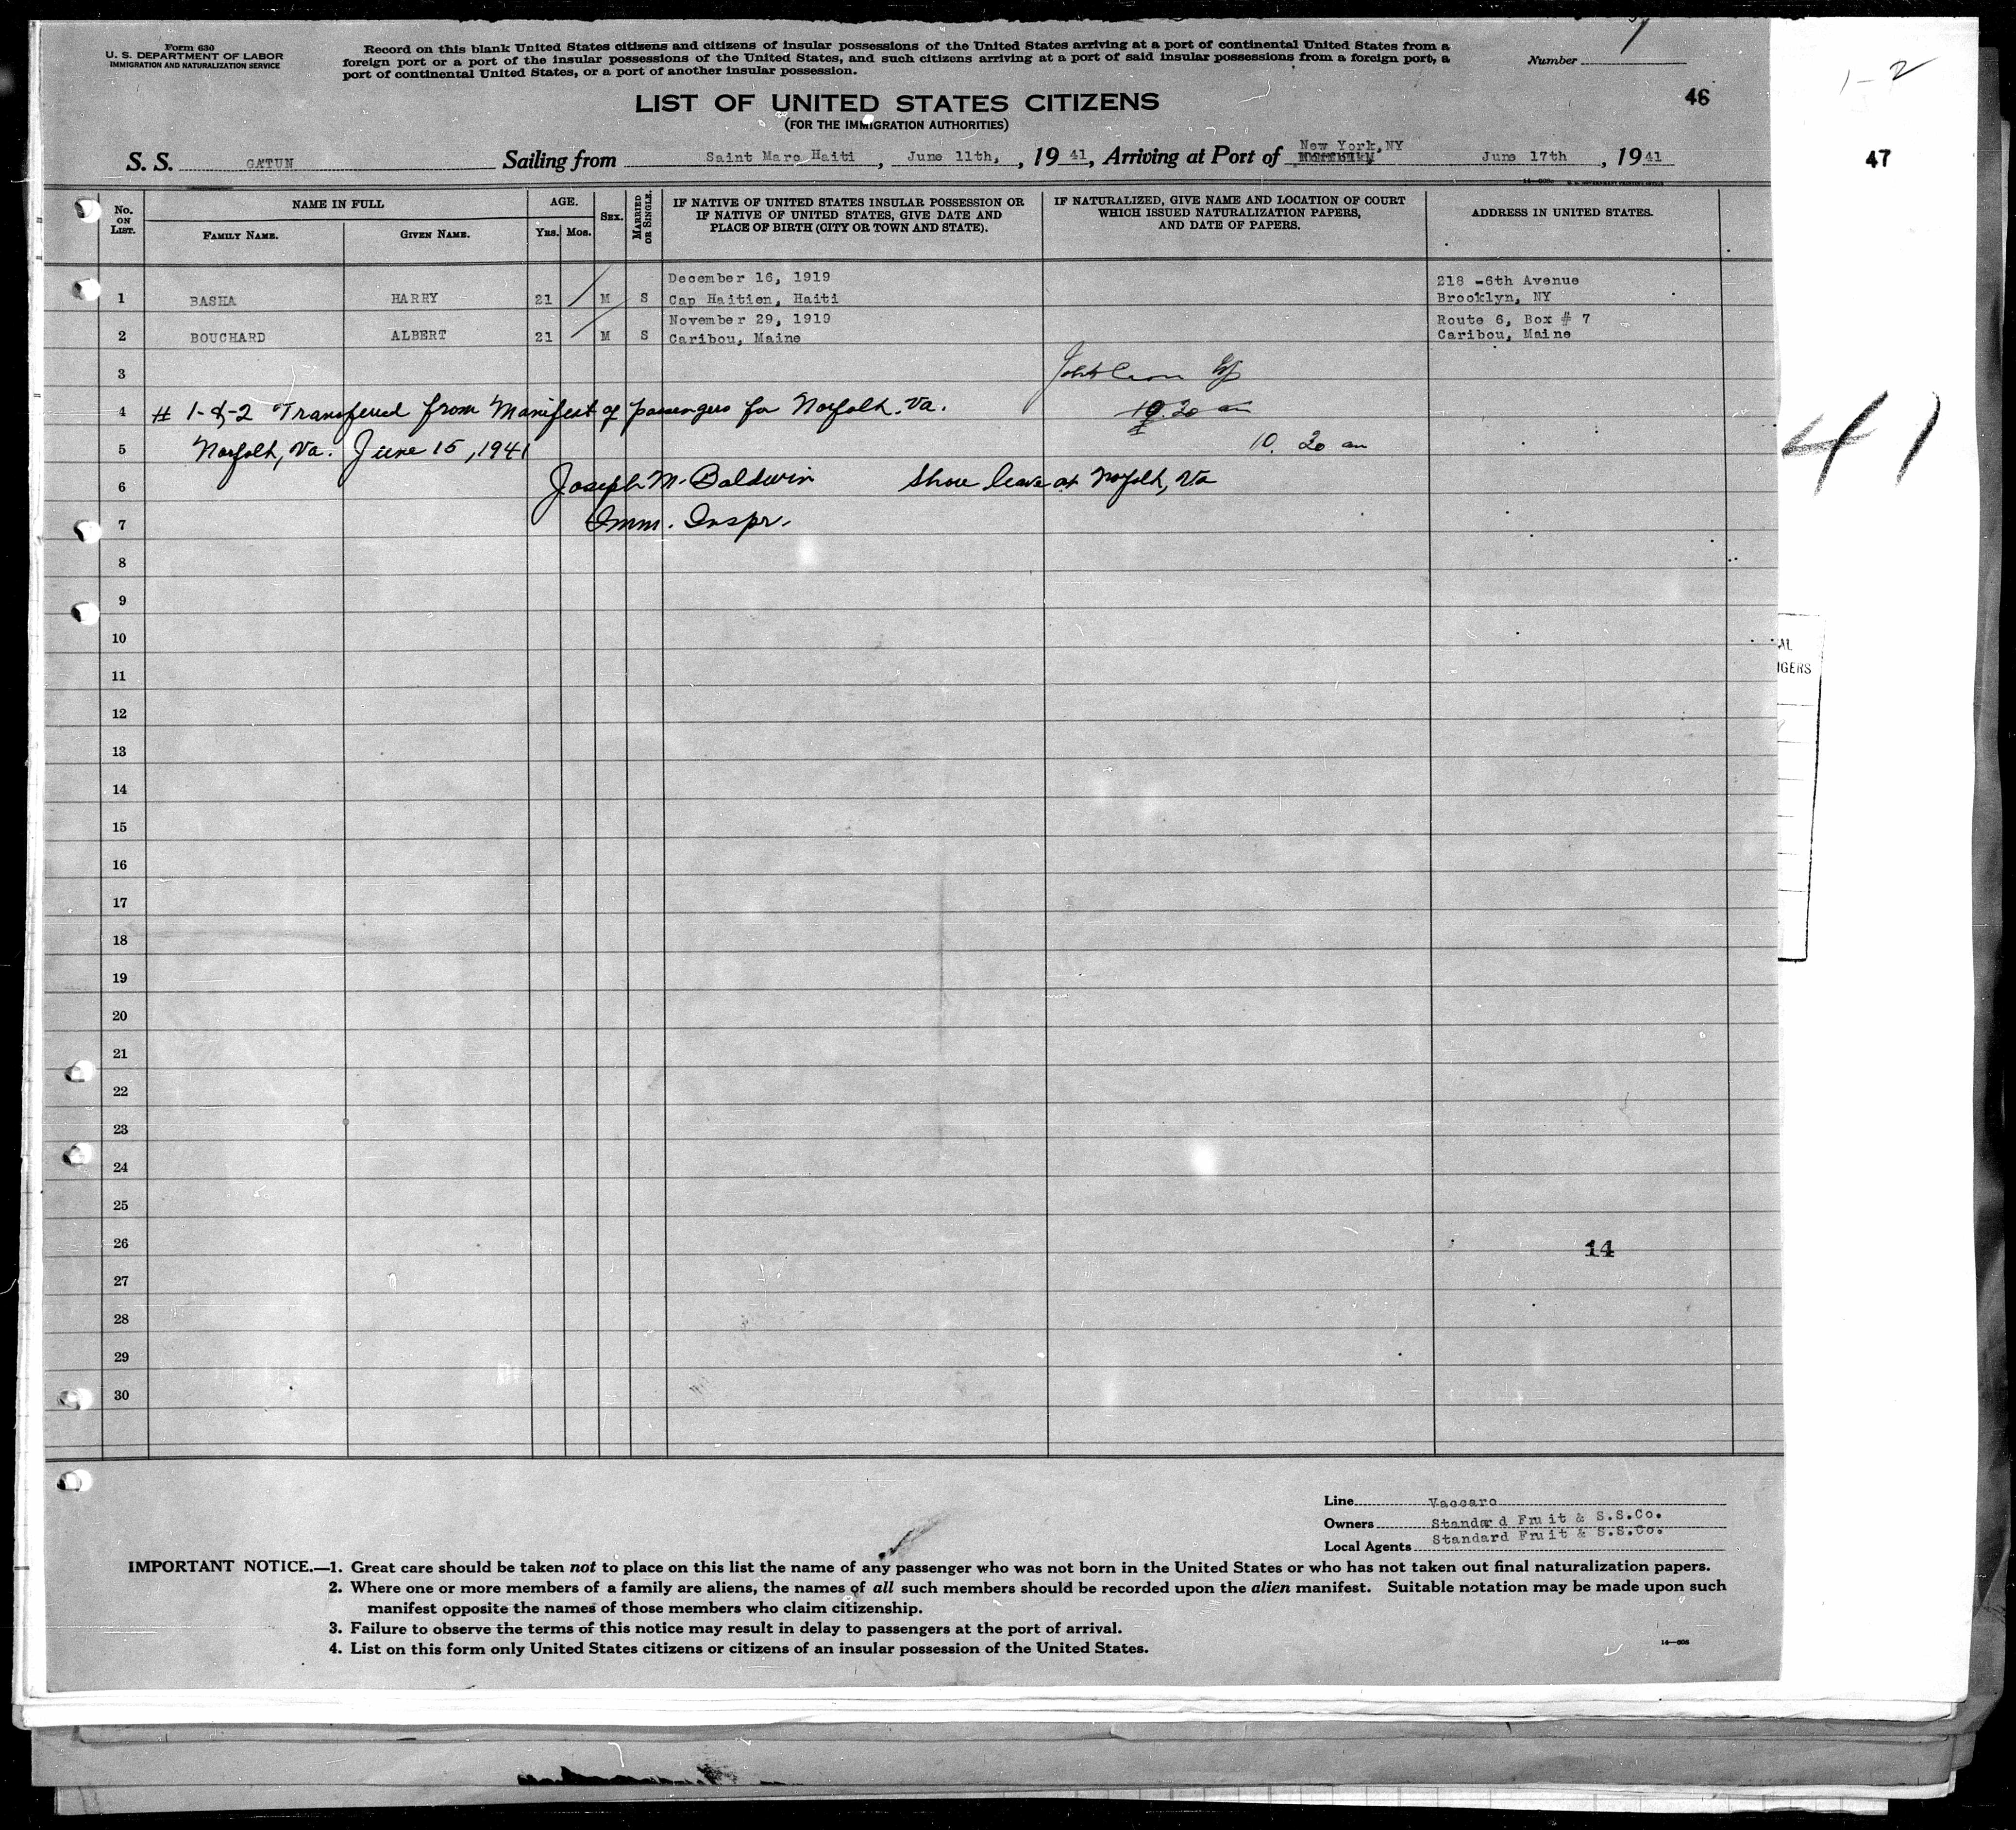 Form 630
U. S. DEPARTMENT OF LABOR
IMMIGRATION AND NATURALIZATION SERVICE
Record on this blank United States citizens and citizens of insular possessions of the United States arriving at a port of continental United States from a
foreign port or a port of the insular possessions of the United States, and such citizens arriving at a port of said insular possessions from a foreign port, a
port of continental United States, or a port of another insular possession.
Number
1-2
LIST OF UNITED STATES CITIZENS
46
(FOR THE IMMIGRATION AUTHORITIES)
S. S. GATUN Sailing from Saint Marc Haiti, June 11th, , 19 41, Arriving at Port of New York, NY June 17th, 19 41
47
No. ON LIST.
NAME IN FULL
FAMILY NAME.
GIVEN NAME.
AGE.
YRS. MOS.
SEX.
MARRIED OR SINGLE.
IF NATIVE OF UNITED STATES INSULAR POSSESSION OR
IF NATIVE OF UNITED STATES, GIVE DATE AND
PLACE OF BIRTH (CITY OR TOWN AND STATE).
IF NATURALIZED, GIVE NAME AND LOCATION OF COURT
WHICH ISSUED NATURALIZATION PAPERS,
AND DATE OF PAPERS.
ADDRESS IN UNITED STATES.
December 16, 1919 218 -6th Avenue
1 BASHA HARRY 21 M S Cap Haitien, Haiti Brooklyn, NY
November 29, 1919 Route 6, Box # 7
2 BOUCHARD ALBERT 21 M S Caribou, Maine Caribou, Maine
3
4 # 1-&-2 Transferred from Manifest of passengers for Norfolk. Va. 10.20 am
5 Norfolk, Va. June 15, 1941 10. 20 am
41
6 Joseph M. Baldwin Shore leave at Norfolk, Va
7 Imm. Inspr.
8
9
10
11
12
13
14
15
16
17
18
19
20
21
22
23
24
25
26 14
27
28
29
30
Line Vaccaro
Owners Standard Fruit & S.S.Co.
Local Agents Standard Fruit & S.S.Co.
IMPORTANT NOTICE.—1. Great care should be taken not to place on this list the name of any passenger who was not born in the United States or who has not taken out final naturalization papers.
2. Where one or more members of a family are aliens, the names of all such members should be recorded upon the alien manifest. Suitable notation may be made upon such
manifest opposite the names of those members who claim citizenship.
3. Failure to observe the terms of this notice may result in delay to passengers at the port of arrival.
4. List on this form only United States citizens or citizens of an insular possession of the United States.